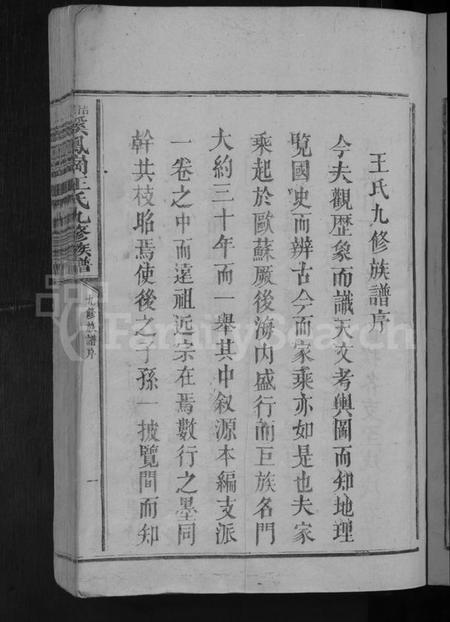 王氏九修族譜序
今夫觀歷象而識天文考輿圖而知地理
覽國史而辨古今而家乘亦如是也夫家
乘起於歐蘇厥後海内盛行而巨族名門
大約三十年而一舉其中叙源本編支派
一卷之中而遠祖近宗在焉數行之墨同
幹共枝昭焉使後之子孫一披覽間而知
溪鳳岡王氏九修族譜
九修族譜序
一
FamilySearch